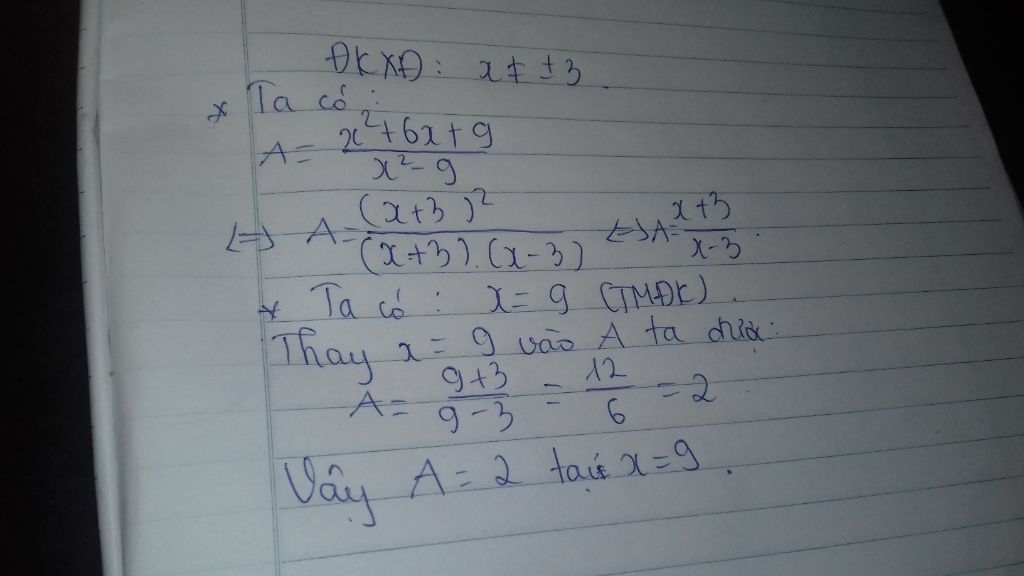 ĐKXĐ: x ≠ ±3.
* Ta có:
A = (x²+6x+9)/(x²-9)
<=> A = (x+3)²/((x+3).(x-3)) <=> A = (x+3)/(x-3).
* Ta có: x = 9 (TMĐK).
Thay x = 9 vào A ta được:
A = (9+3)/(9-3) = 12/6 = 2
Vậy A = 2 tại x = 9.